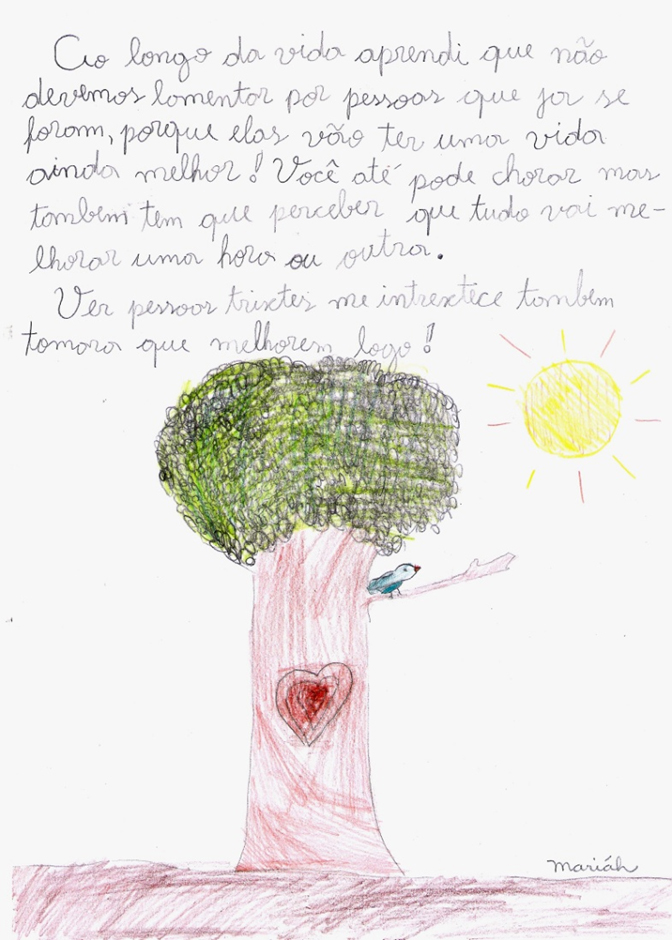 Ao longo da vida aprendi que não
devemos lamentar por pessoas que ja se
foram, porque elas vão ter uma vida
ainda melhor! Você até pode chorar mas
tambem tem que perceber que tudo vai me-
lhorar uma hora ou outra.
Ver pessoas tristes me intrextece tambem
tomara que melhorem logo!
mariáh